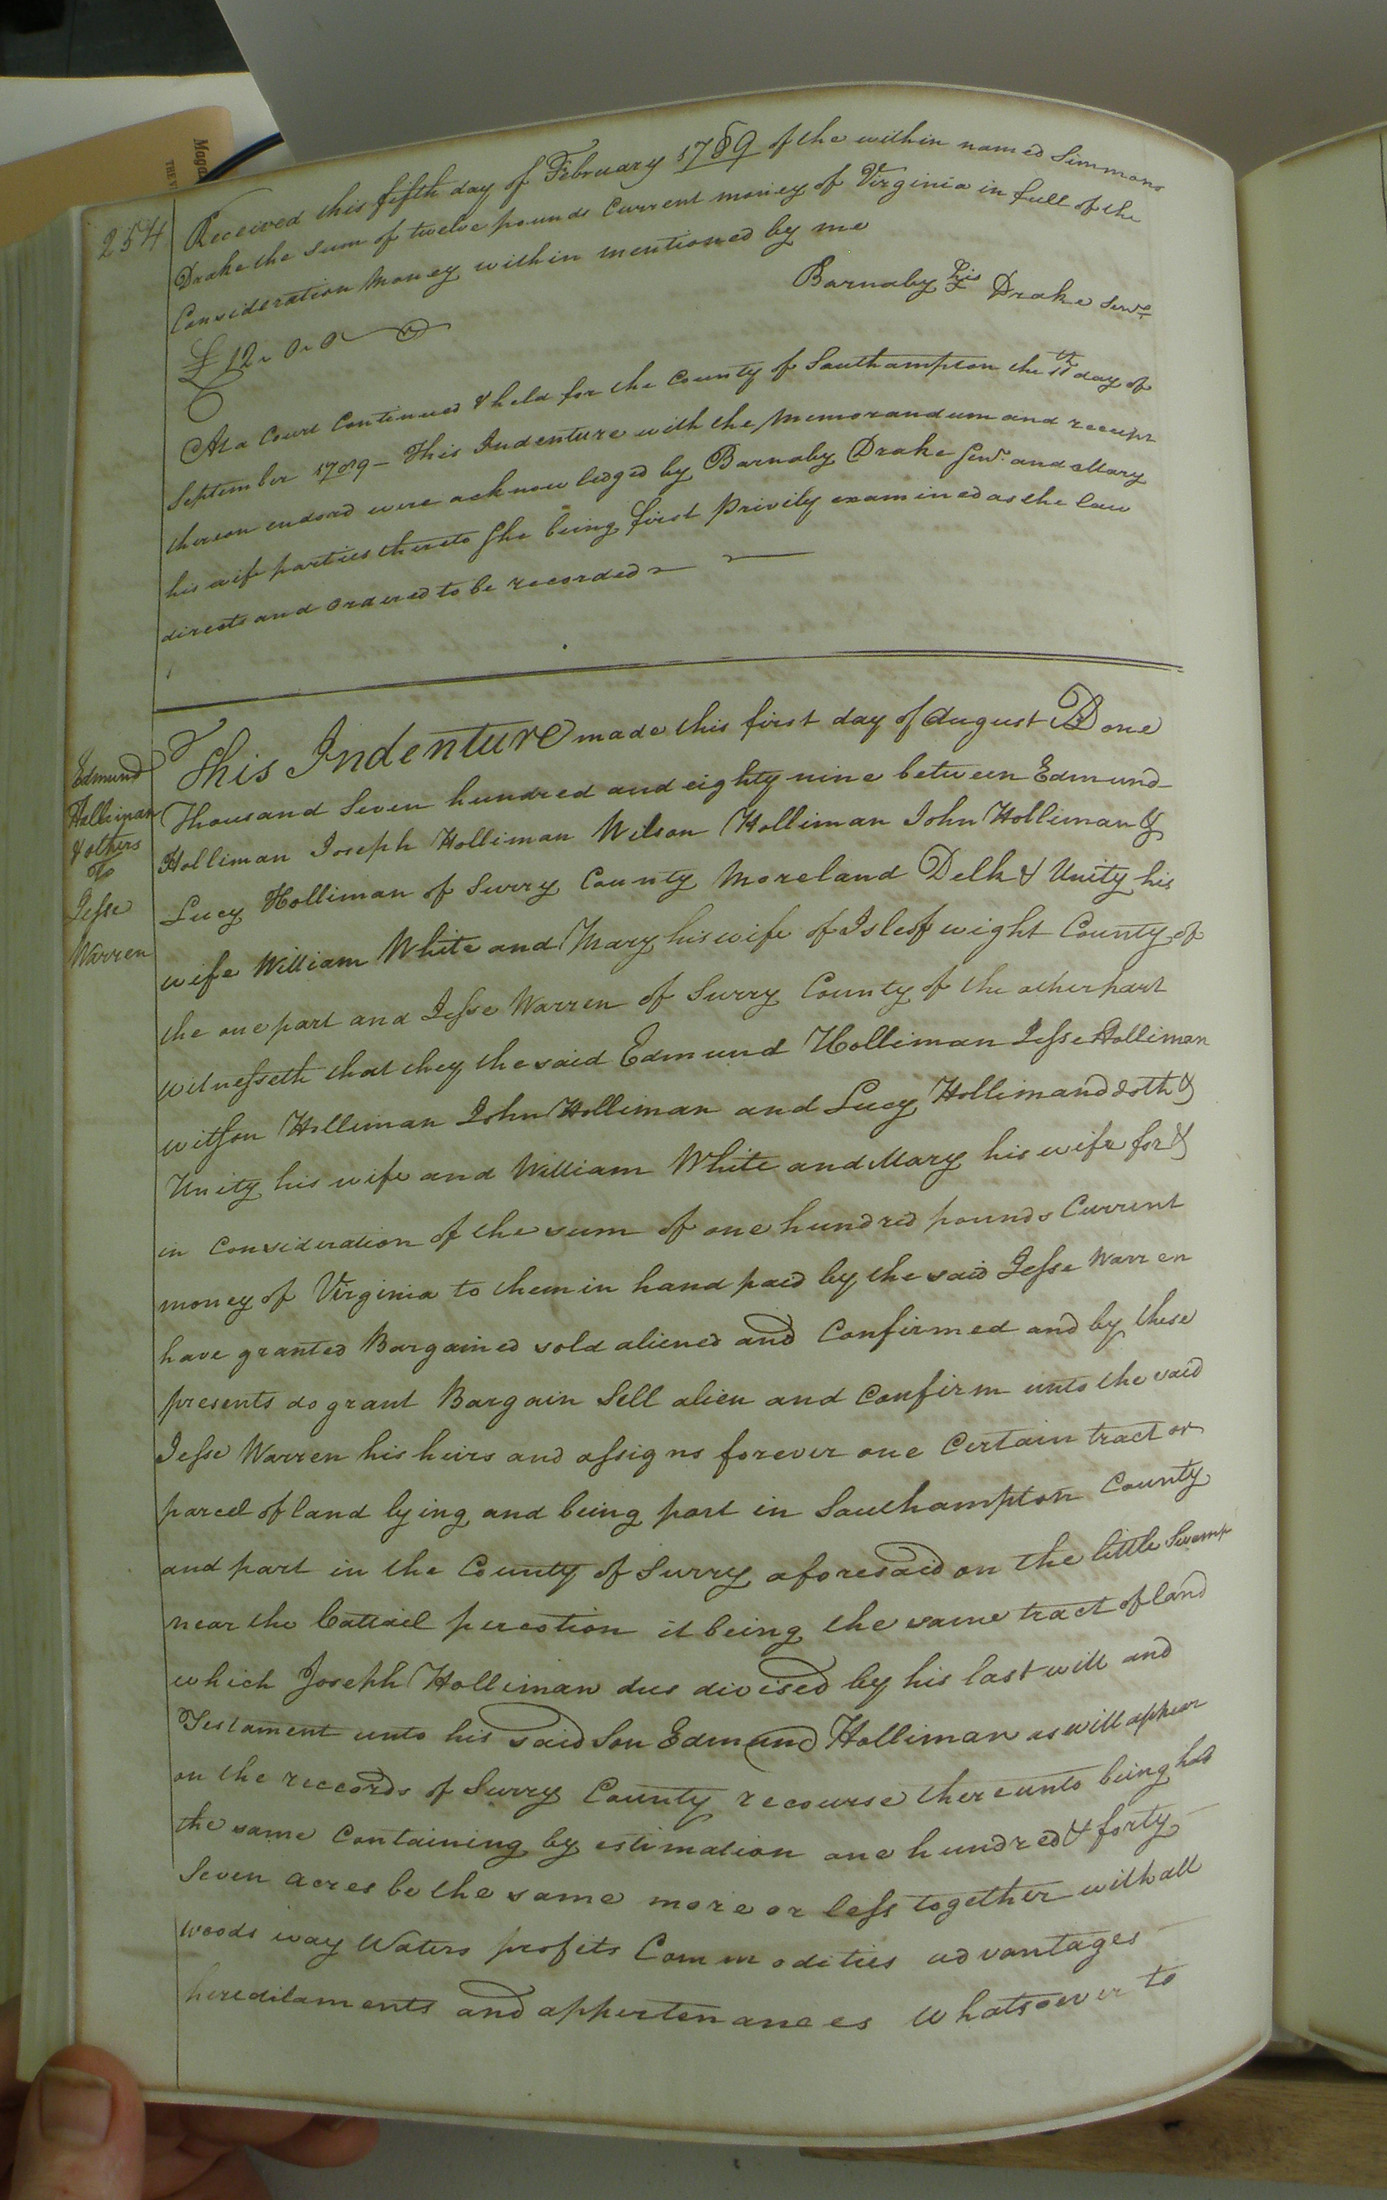 254
Received this fifth day of February 1789 of the within named Simmons
Drake the sum of twelve pounds Current money of Virginia in full of the
Consideration Money within mentioned by me
Barnaby his Drake Senr.
£12. 0. 0
At a Court Continued & held for the County of Southampton the 11th day of
September 1789 - This Indenture with the Memorandum and receipt
thereon endors'd were acknowledged by Barnaby Drake Senr. and Mary
his wife parties thereto She being first Privily examined as the law
directs and ordered to be recorded
Edmund
Holliman
& others
To
Jesse
Warren
This Indenture made this first day of August AD one
Thousand Seven hundred and eighty nine between Edmund
Holliman Joseph Holliman Wilson Holliman John Holliman &
Lucy Holliman of Surry County Moreland Delk & Unity his
wife William White and Mary his wife of Isle of wight County of
the one part and Jesse Warren of Surry County of the other part
witnesseth that they the said Edmund Holliman Jesse Holliman
Holliman John Holliman and Lucy Holliman &
Unity his wife and William White and Mary his wife for &
in Consideration of the sum of one hundred pounds Current
money of Virginia to them in hand paid by the said Jesse Warren
have granted Bargained sold aliened and Confirmed and by these
presents do grant Bargain Sell alien and Confirm unto the said
Jesse Warren his heirs and assigns forever one Certain tract or
parcel of land lying and being part in Southampton County
and part in the County of Surry aforesaid on the little Swamp
near the Cattail it being the same tract of land
which Joseph Holliman divised by his last will and
Testament unto his said Son Edmund Holliman as will appear
on the records of Surry County recourse thereunto being had
the same Containing by estimation one hundred & forty
Seven acres be the same more or less together with all
woods way Waters profits Commodities advantages
hereditaments and appertenances whatsoever to
Maga
THE V